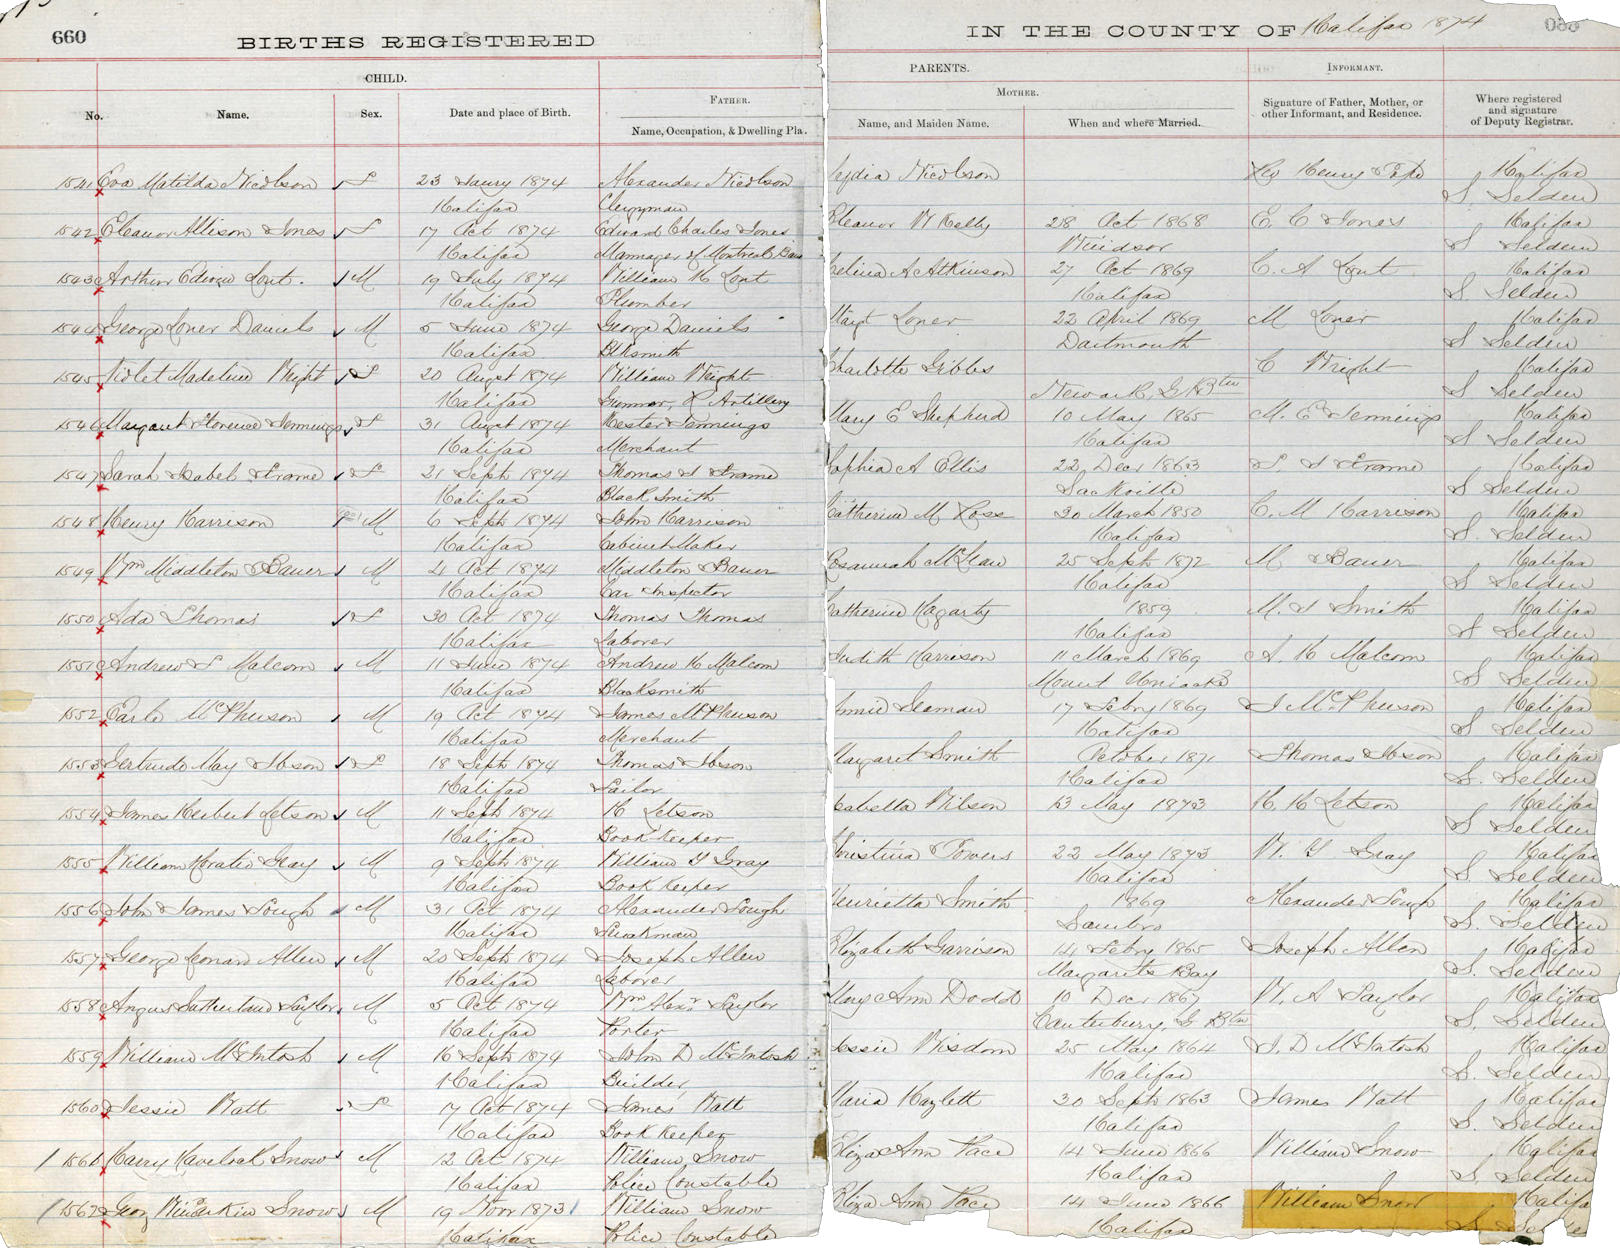 660 BIRTHS REGISTERED IN THE COUNTY OF Halifax 1874 660
CHILD. PARENTS. INFORMANT.
FATHER. MOTHER.
No. Name. Sex. Date and place of Birth. Name, Occupation, & Dwelling Pla. Name, and Maiden Name. When and where Married. Signature of Father, Mother, or other Informant, and Residence. Where registered and signature of Deputy Registrar.
1541 Eva Matilda Nicolson F 23 Jany 1874 Alexander Nicolson Lydia Nicolson Henry Halifax
Halifax Clergyman S Selden
1542 Eleanor Allison Jones F 17 Oct 1874 Edward Charles Jones Eleanor W Kelly 28 Oct 1868 E. C Jones Halifax
Halifax Mannager of Montreal Windsor S Selden
1543 Arthur Edwin Lont. M 19 July 1874 William H Lont Celina A Atkinson 27 Oct 1869 C. A Lont Halifax
Halifax Plumber Halifax S Selden
1544 George Loner Daniels M 5 June 1874 George Daniels Margt Loner 22 April 1869 M Loner Halifax
Halifax Blksmith Dartmouth S Selden
1545 Violet Madeline Wright F 20 Augst 1874 William Wright Charlotte Gibbs C Wright Halifax
Halifax Gunnor, R Artillery Newark, G. Btn S Selden
1546 Margaret Florence Jennings F 31 Augst 1874 Wester Jennings Mary E Shepherd 10 May 1865 M. E Jennings Halifax
Halifax Merchant Halifax S Selden
1547 Sarah Isabel Frame F 21 Sept 1874 Thomas J Frame Sophia A Ellis 22 Decr 1863 T. J Frame Halifax
Halifax Black Smith Sackville S Selden
1548 Henry Harrison M 6 Sept 1874 John Harrison Catherine M Ross 30 March 1850 C. M Harrison Halifax
Halifax Cabinet Maker Halifax S. Selden
1549 Wm Middleton Bauer M 4 Oct 1874 Middleton Bauer Rosannah McLean 25 Sept 1872 M Bauer Halifax
Halifax Car Inspector Halifax S Selden
1550 Ada Thomas F 30 Oct 1874 Thomas Thomas Catherine Hagarty 1859 M. J Smith Halifax
Halifax Laborer Halifax S Selden
1551 Andrew F Malcom M 11 June 1874 Andrew H Malcom Judith Harrison 11 March 1869 A. H Malcom Halifax
Halifax Blacksmith Mount Uniacke S Selden
1552 Earle McPherson M 19 Oct 1874 James McPherson Annie Seaman 17 Febry 1869 J McPherson Halifax
Halifax Merchant Halifax S Selden
1553 Gertrude May Ibson F 18 Sept 1874 Thomas Ibson Margaret Smith October 1871 Thomas Ibson Halifax
Halifax Tailor Halifax S. Selden
1554 James Herbert Letson M 11 Sept 1874 H Letson Isabella Wilson 13 May 1873 H. H Letson Halifax
Halifax Book Keeper Halifax S Selden
1555 William Horatio Gray M 9 Sept 1874 William G Gray Christina Towers 22 May 1873 W. G Gray Halifax
Halifax Book Keeper Halifax S Selden
1556 John James Lough M 31 Oct 1874 Alexander Lough Henrietta Smith 1869 Alexander Lough Halifax
Halifax Truckman Sambro S. Selden
1557 George Lenard Allen M 20 Sept 1874 Joseph Allen Elizabeth Garrison 14 Febry 1865 Joseph Allen Halifax
Halifax Laborer Margarets Bay S. Selden
1558 Angus Sutherland Taylor M 5 Oct 1874 Wm Alexr Taylor Mary Ann Dodd 10 Decr 1867 W. A Taylor Halifax
Halifax Porter Canterbury, G Btn S. Selden
1559 William McIntosh M 16 Sept 1874 John D McIntosh Jessie Wisdom 25 May 1864 J. D McIntosh Halifax
Halifax Builder Halifax S. Selden
1560 Jessie Watt F 17 Oct 1874 James Watt Maria Hazlett 30 Sept 1863 James Watt Halifax
Halifax Book Keeper Halifax S. Selden
1561 Harry Havelock Snow M 12 Oct 1874 William Snow Eliza Ann Pace 14 June 1866 William Snow Halifax
Halifax Police Constable Halifax S. Selden
1562 Geog Snow M 19 Novr 1873 William Snow Eliza Ann Pace 14 June 1866 William Snow Halifa
Halifax Police Constable Halifax